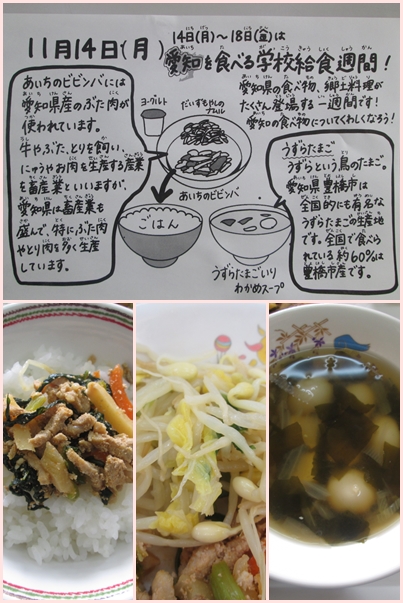 11月14日(月)
14日(月)～18日(金)は
愛知を食べる学校給食週間!
愛知県の食べ物、郷土料理が
たくさん登場する一週間です!
愛知の食べ物についてくわしくなろう!
あいちのビビンバには
愛知県産のぶた肉が
使われています。
牛やぶた、とりを飼い、
にゅうやお肉を生産する産業
を畜産業といいますが、
愛知県は畜産業も
盛んで、特にぶた肉
やとり肉を多く生産
しています。
ヨーグルト
だいずもやしの
ナムル
あいちのビビンバ
ごはん
うずらたまごいり
わかめスープ
うずらたまご
うずらという鳥のたまご。
愛知県豊橋市は
全国的にも有名な
うずらたまごの生産地
です。全国で食べら
れている約60%は
豊橋市産です。